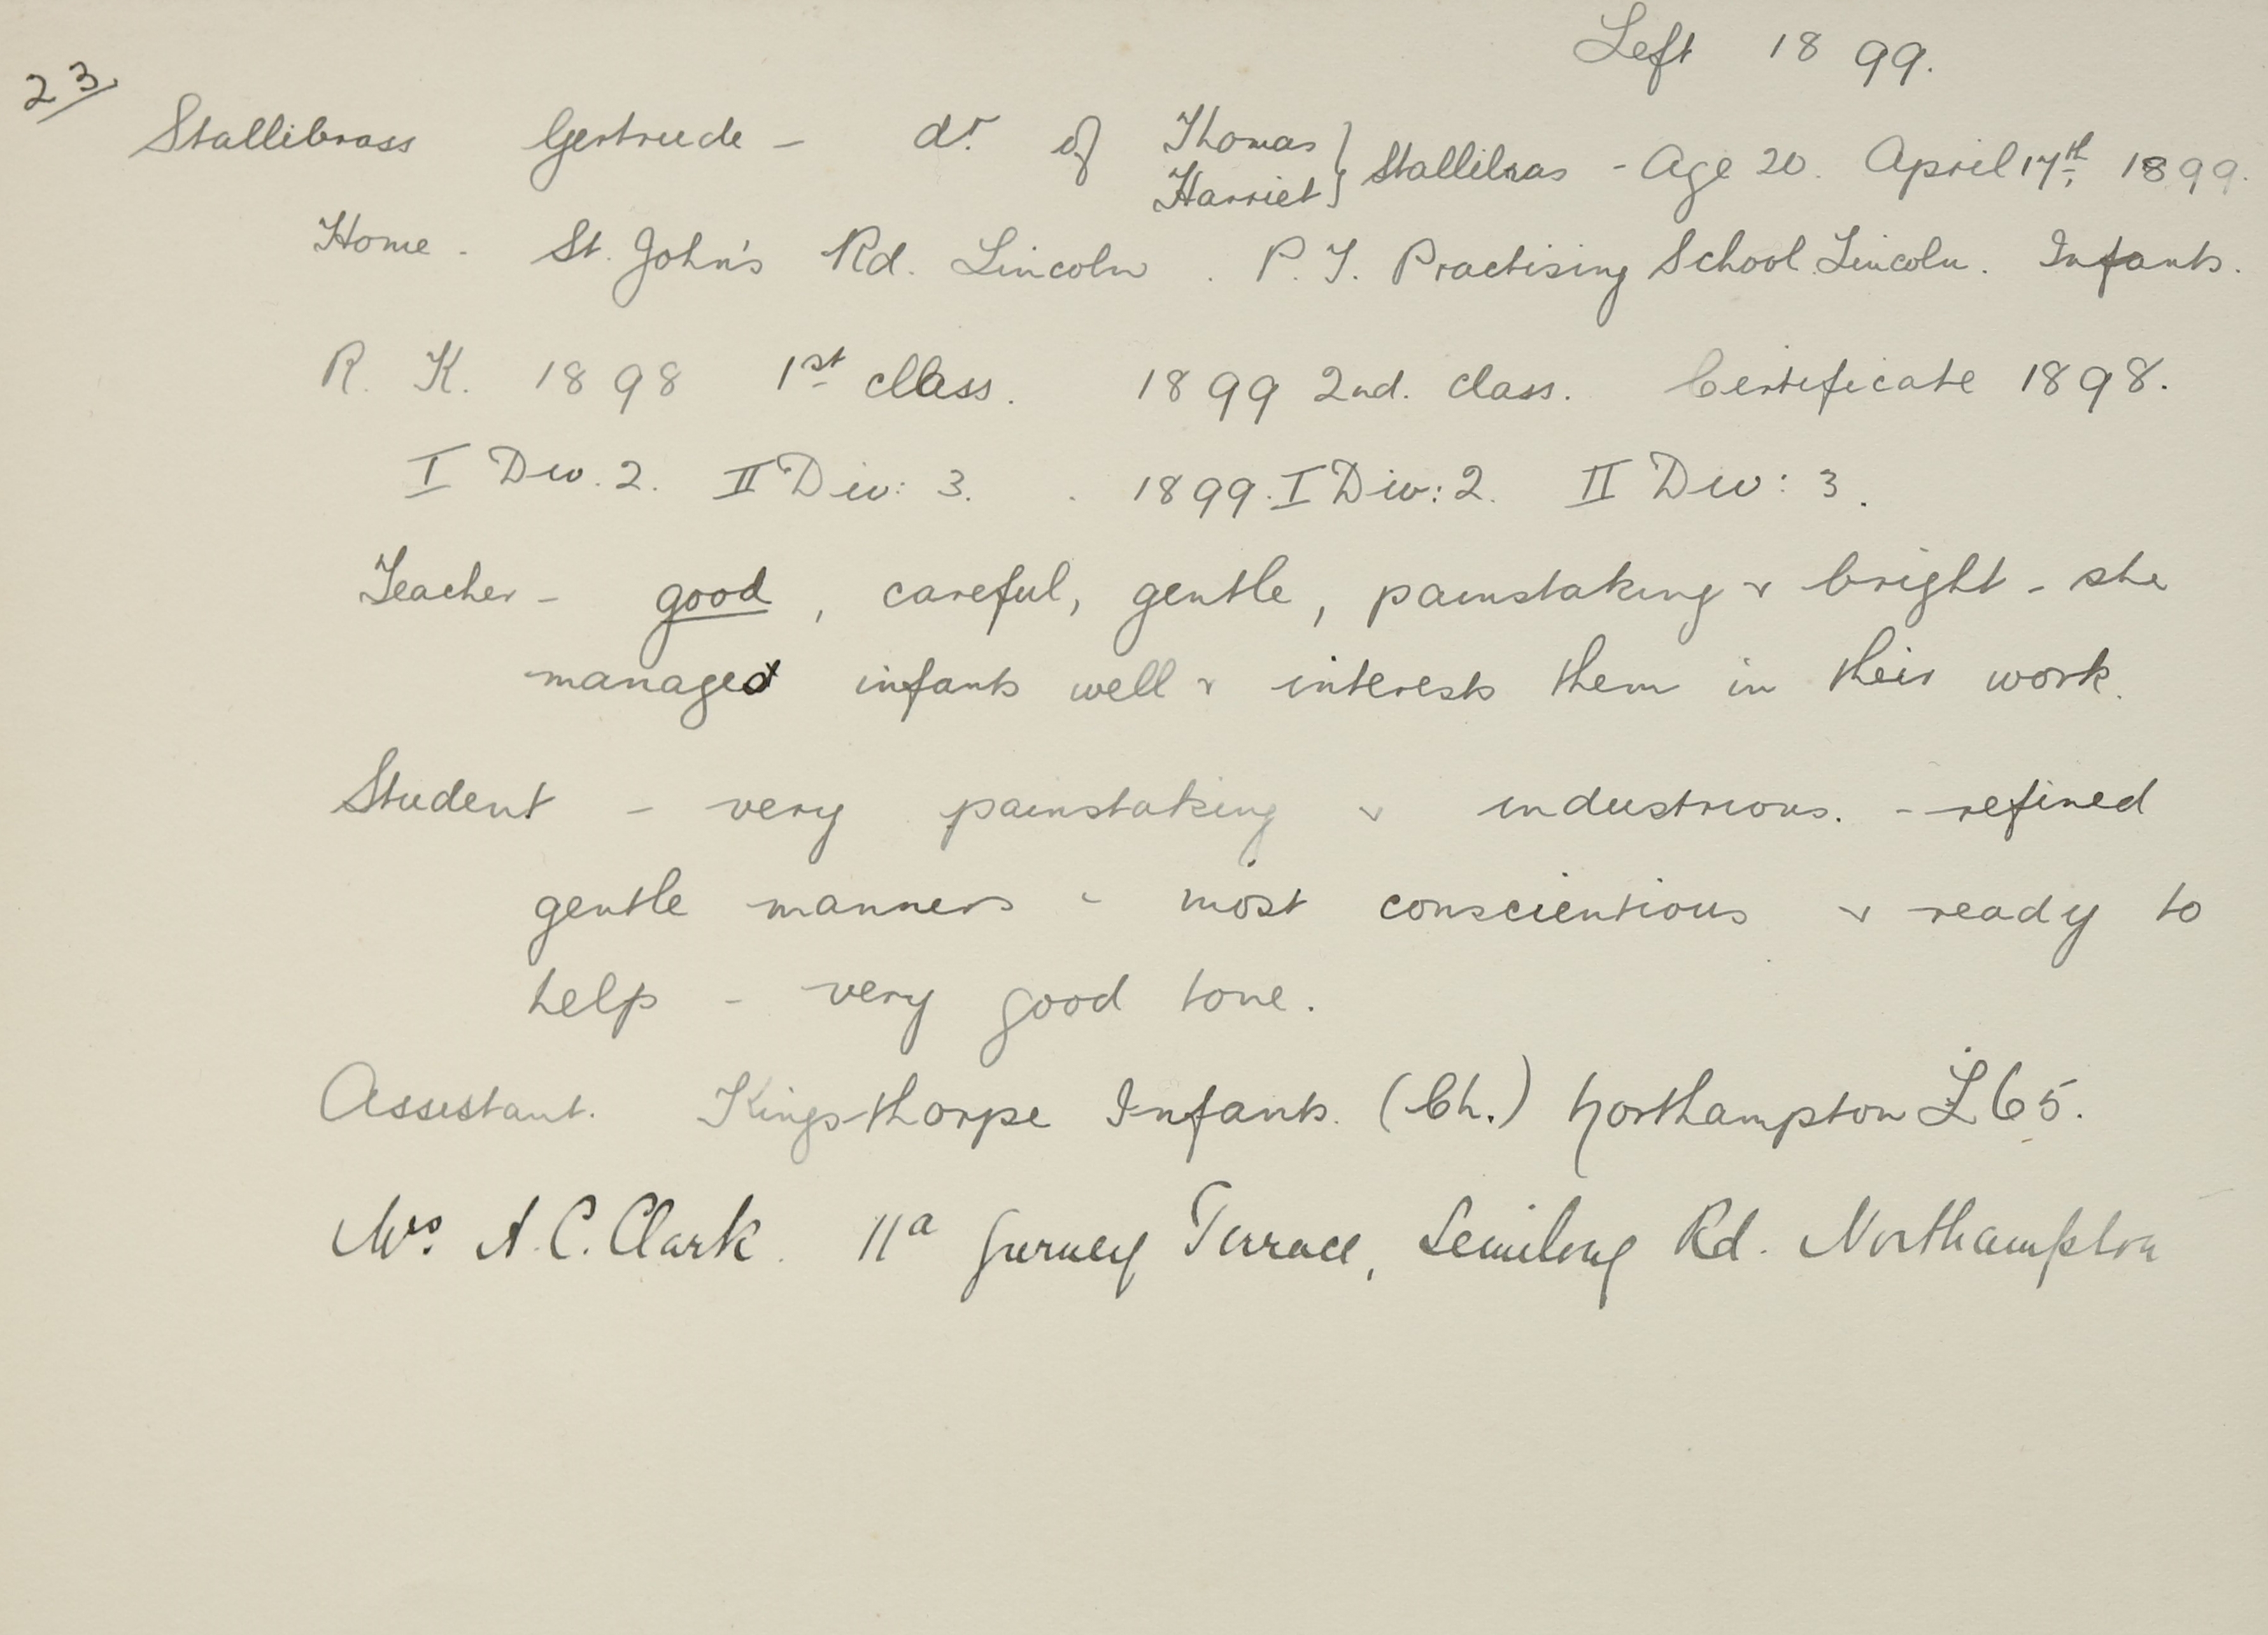 Left 1899.
23
Stallibrass Gertrude - dr. of Thomas Harriet } Stallibras - Age 20. April 17th, 1899.
Home - St. John's Rd. Lincoln. P.T. Practising School Lincoln. Infants.
R. K. 1898 1st class. 1899 2nd. class. Certificate 1898.
I Div. 2. II Div: 3. 1899. I Div: 2. II Div: 3.
Teacher - good, careful, gentle, painstaking & bright - she
managed infants well & interests them in their work.
Student - very painstaking & industrious. - refined
gentle manners - most conscientious & ready to
help - very good tone.
Assistant. Kingsthorpe Infants. (Ch.) Northampton £65.
Mrs. A. C. Clark. 11a Gurney Terrace, Semilong Rd. Northampton